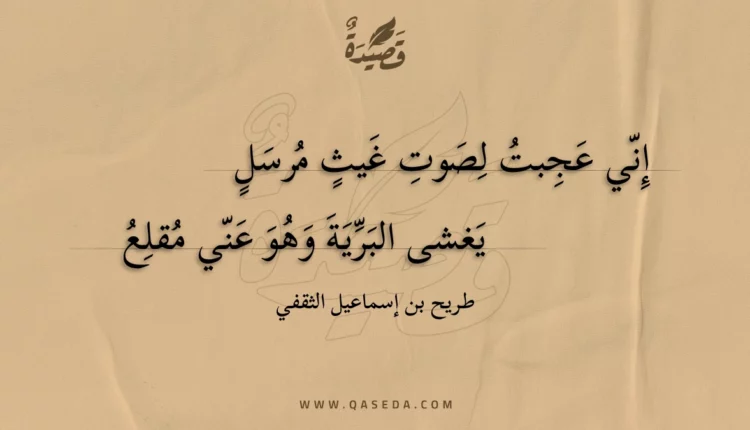 قَصِيدَةٌ
إِنّي عَجِبتُ لِصَوتِ غَيثٍ مُرسَلٍ
يَغشى البَرِّيَةَ وَهُوَ عَنّي مُقلِعُ
طريح بن إسماعيل الثقفي
WWW.QASEDA.COM